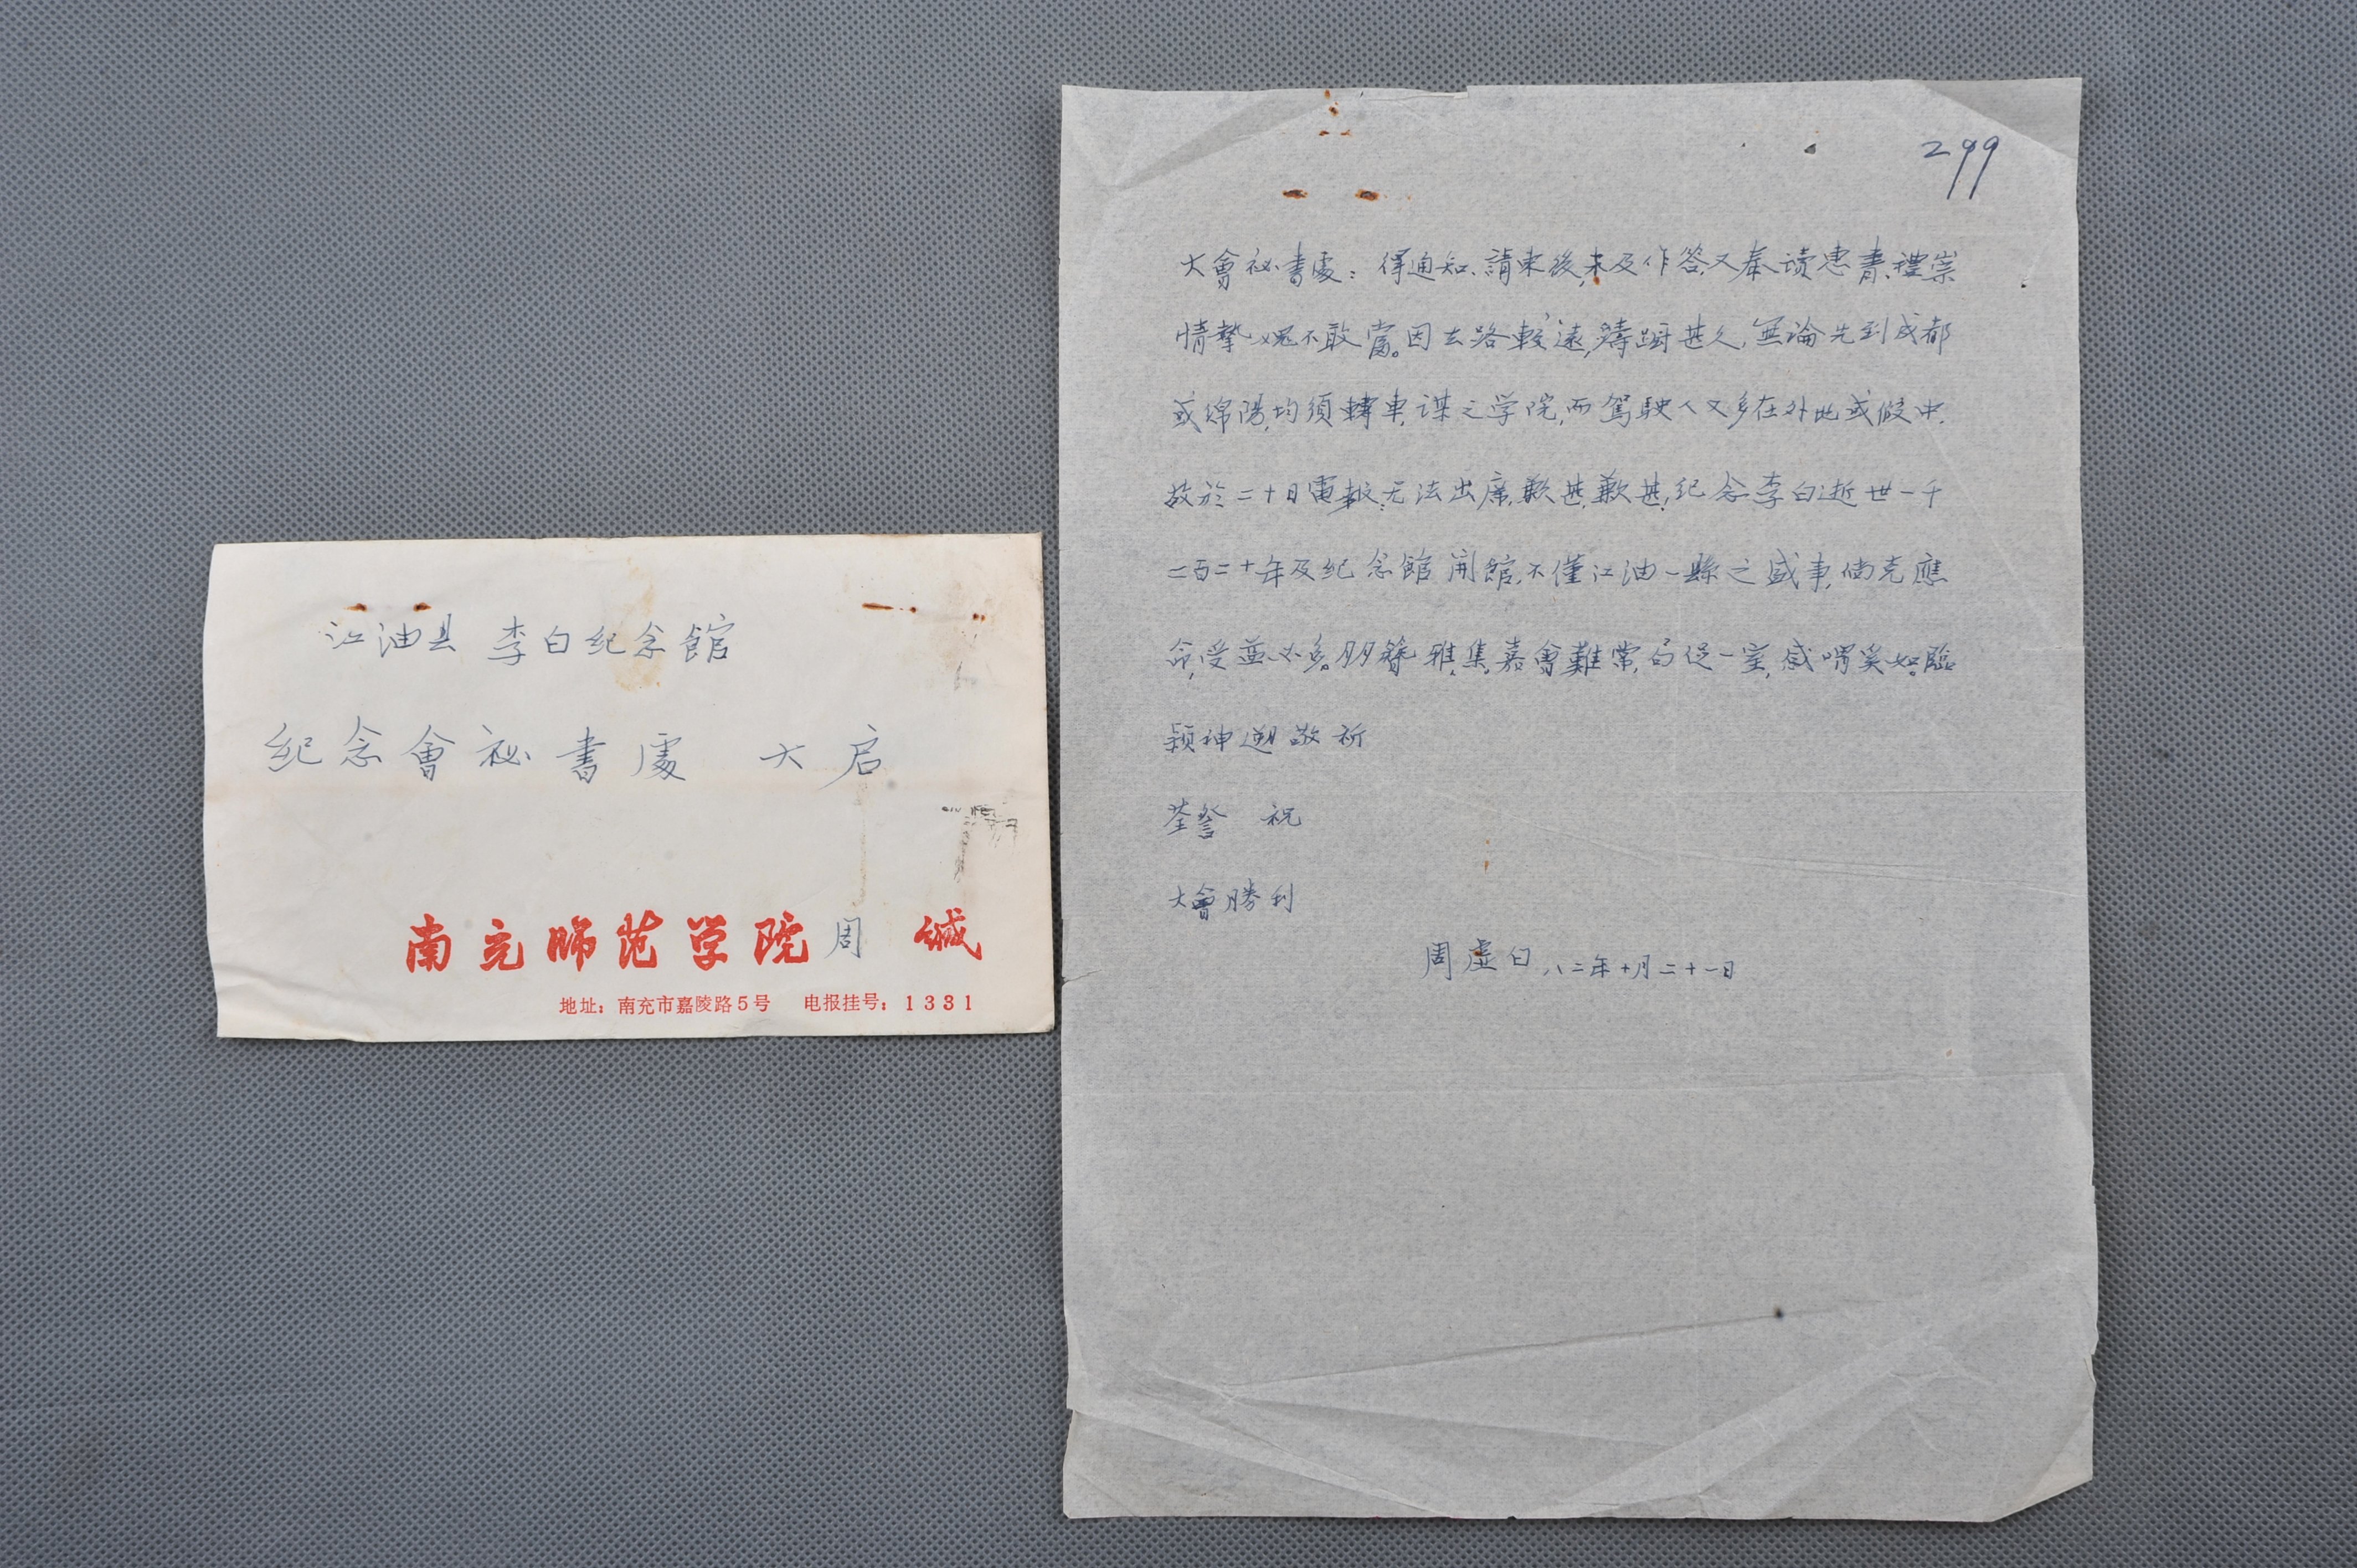 江油县 李白纪念館
纪念會祕書處 大启
南充师范学院 周 缄
地址：南充市嘉陵路5号 电报挂号：1331
299
大會祕書處：得通知、請柬後，未及作答，又奉读惠書、禮崇
情摯，愧不敢當。因去路較遠，躊躇甚久，無論先到成都
或綿陽，均須轉車，謀之学院，而驾駛人又多在外地或假中，
故於二十日電報无法出席，歉甚，歉甚，纪念李白逝世一千
二百二十年及纪念館開館，不僅江油一縣之盛事，倘克應
命，受益必多。朋簪雅集，嘉會難常，局促一室，感喟奚如。臨
颖神遡敬祈
荃詧 祝
大會勝利
周虚白，八二年十月二十一日